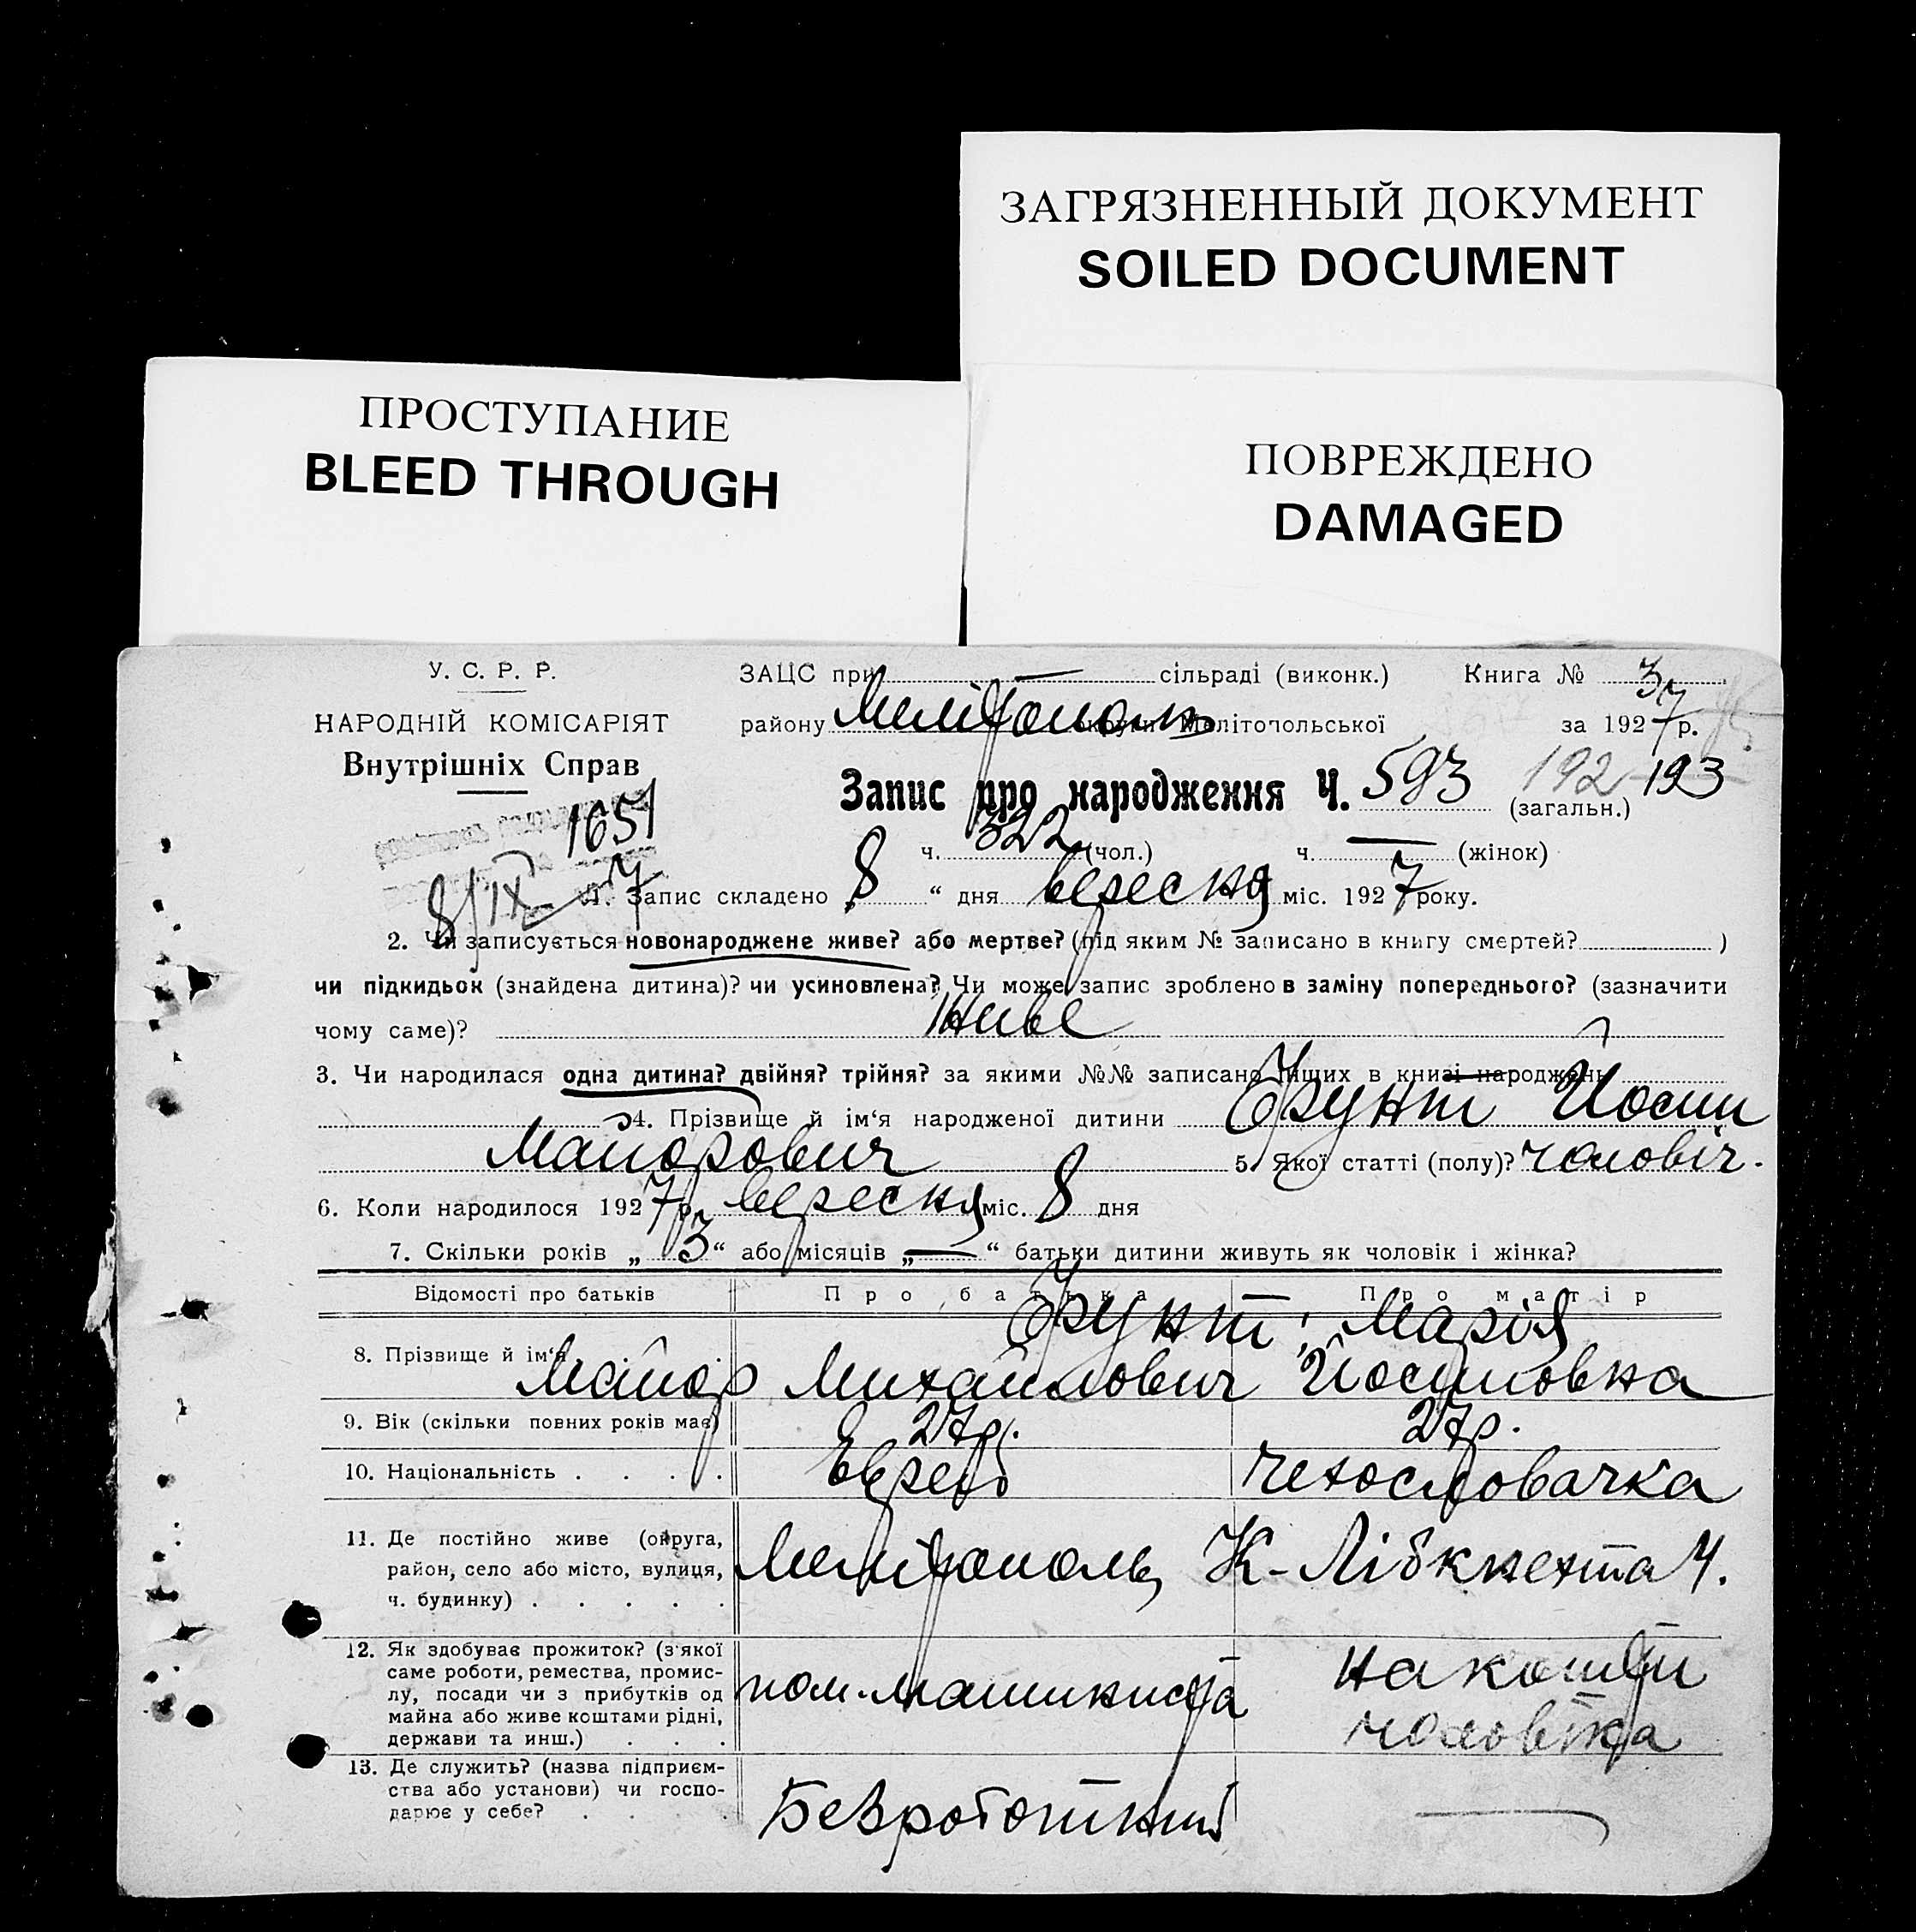 ЗАГРЯЗНЕННЫЙ ДОКУМЕНТ
SOILED DOCUMENT
ПРОСТУПАНИЕ
BLEED THROUGH
ПОВРЕЖДЕНО
DAMAGED
У. С. Р. Р.
НАРОДНІЙ КОМІСАРІЯТ
Внутрішніх Справ
1651
8/IX 7
ЗАЦС при — сільраді (виконк.) Книга № 3
району Мелітополь округи Мелітопольської за 1927 р.
Запис про народження Ч. 593 (загальн.) 192 193
ч. 322 (чол.) ч. — (жінок)
1. Запис складено „ 8 “ дня вересня міс. 1927 року.
2. Чи записується новонароджене живе? або мертве? (під яким № записано в книгу смертей? )
чи підкидьок (знайдена дитина)? чи усиновлена? Чи може запис зроблено в заміну попереднього? (зазначити
чому саме)? Живе
3. Чи народилася одна дитина? двійня? трійня? за якими №№ записано інших в книзі народжень —
4. Прізвище й ім‘я народженої дитини Фрунт Йосип
Майорович 5. Якої статті (полу)? чоловіч.
6. Коли народилося 1927 р. вересня міс. 8 дня
7. Скільки років „ 3 “ або місяців „ — “ батьки дитини живуть як чоловік і жінка?
Відомості про батьків Про батька Про матір
8. Прізвище й ім‘я . . . Фрунт Марія
Майор Михайлович Йосиповна
9. Вік (скільки повних років має) 27 р. 27 р.
10. Національність . . . . Еврей Чехословачка
11. Де постійно живе (округа,
район, село або місто, вулиця,
ч. будинку) . . . . .
Мелітополь, К-Лібкнехта 4.
12. Як здобуває прожиток? (з якої
саме роботи, ремества, промис-
лу, посади чи з прибутків од
майна або живе коштами рідні,
держави та инш.) . . .
пом. машиниста
на кошти
чоловіка
13. Де служить? (назва підприєм-
ства або установи) чи госпо-
дарює у себе? . . . .
Безроботний —